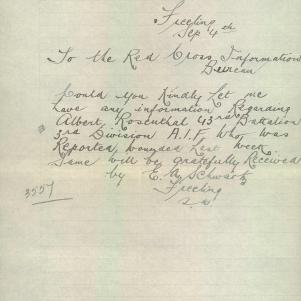 Freeling
Sep 4th
To the Red Cross Information
Bureau
Could you Kindly Let me
have any information Regarding
Albert Rosenthal 43rd Battalion
3rd Division A.I.F. who was
Reported wounded Last week
Same will be gratefully Received
by E. A. Schwartz
3557
Freeling
S.A.